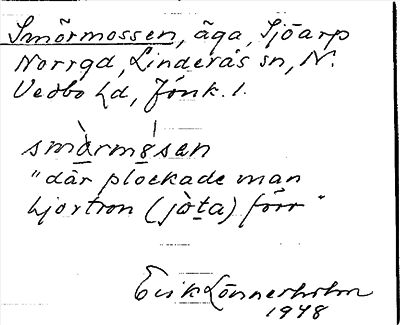 Smörmossen, äga, Sjöarp
Norrgd, Linderås sn, N.
Vedbo hd, Jönk. l.
smàrmo̲sən
"där plockade man
hjortron (jò̲ta) förr"
Erik Lönnerholm
1948